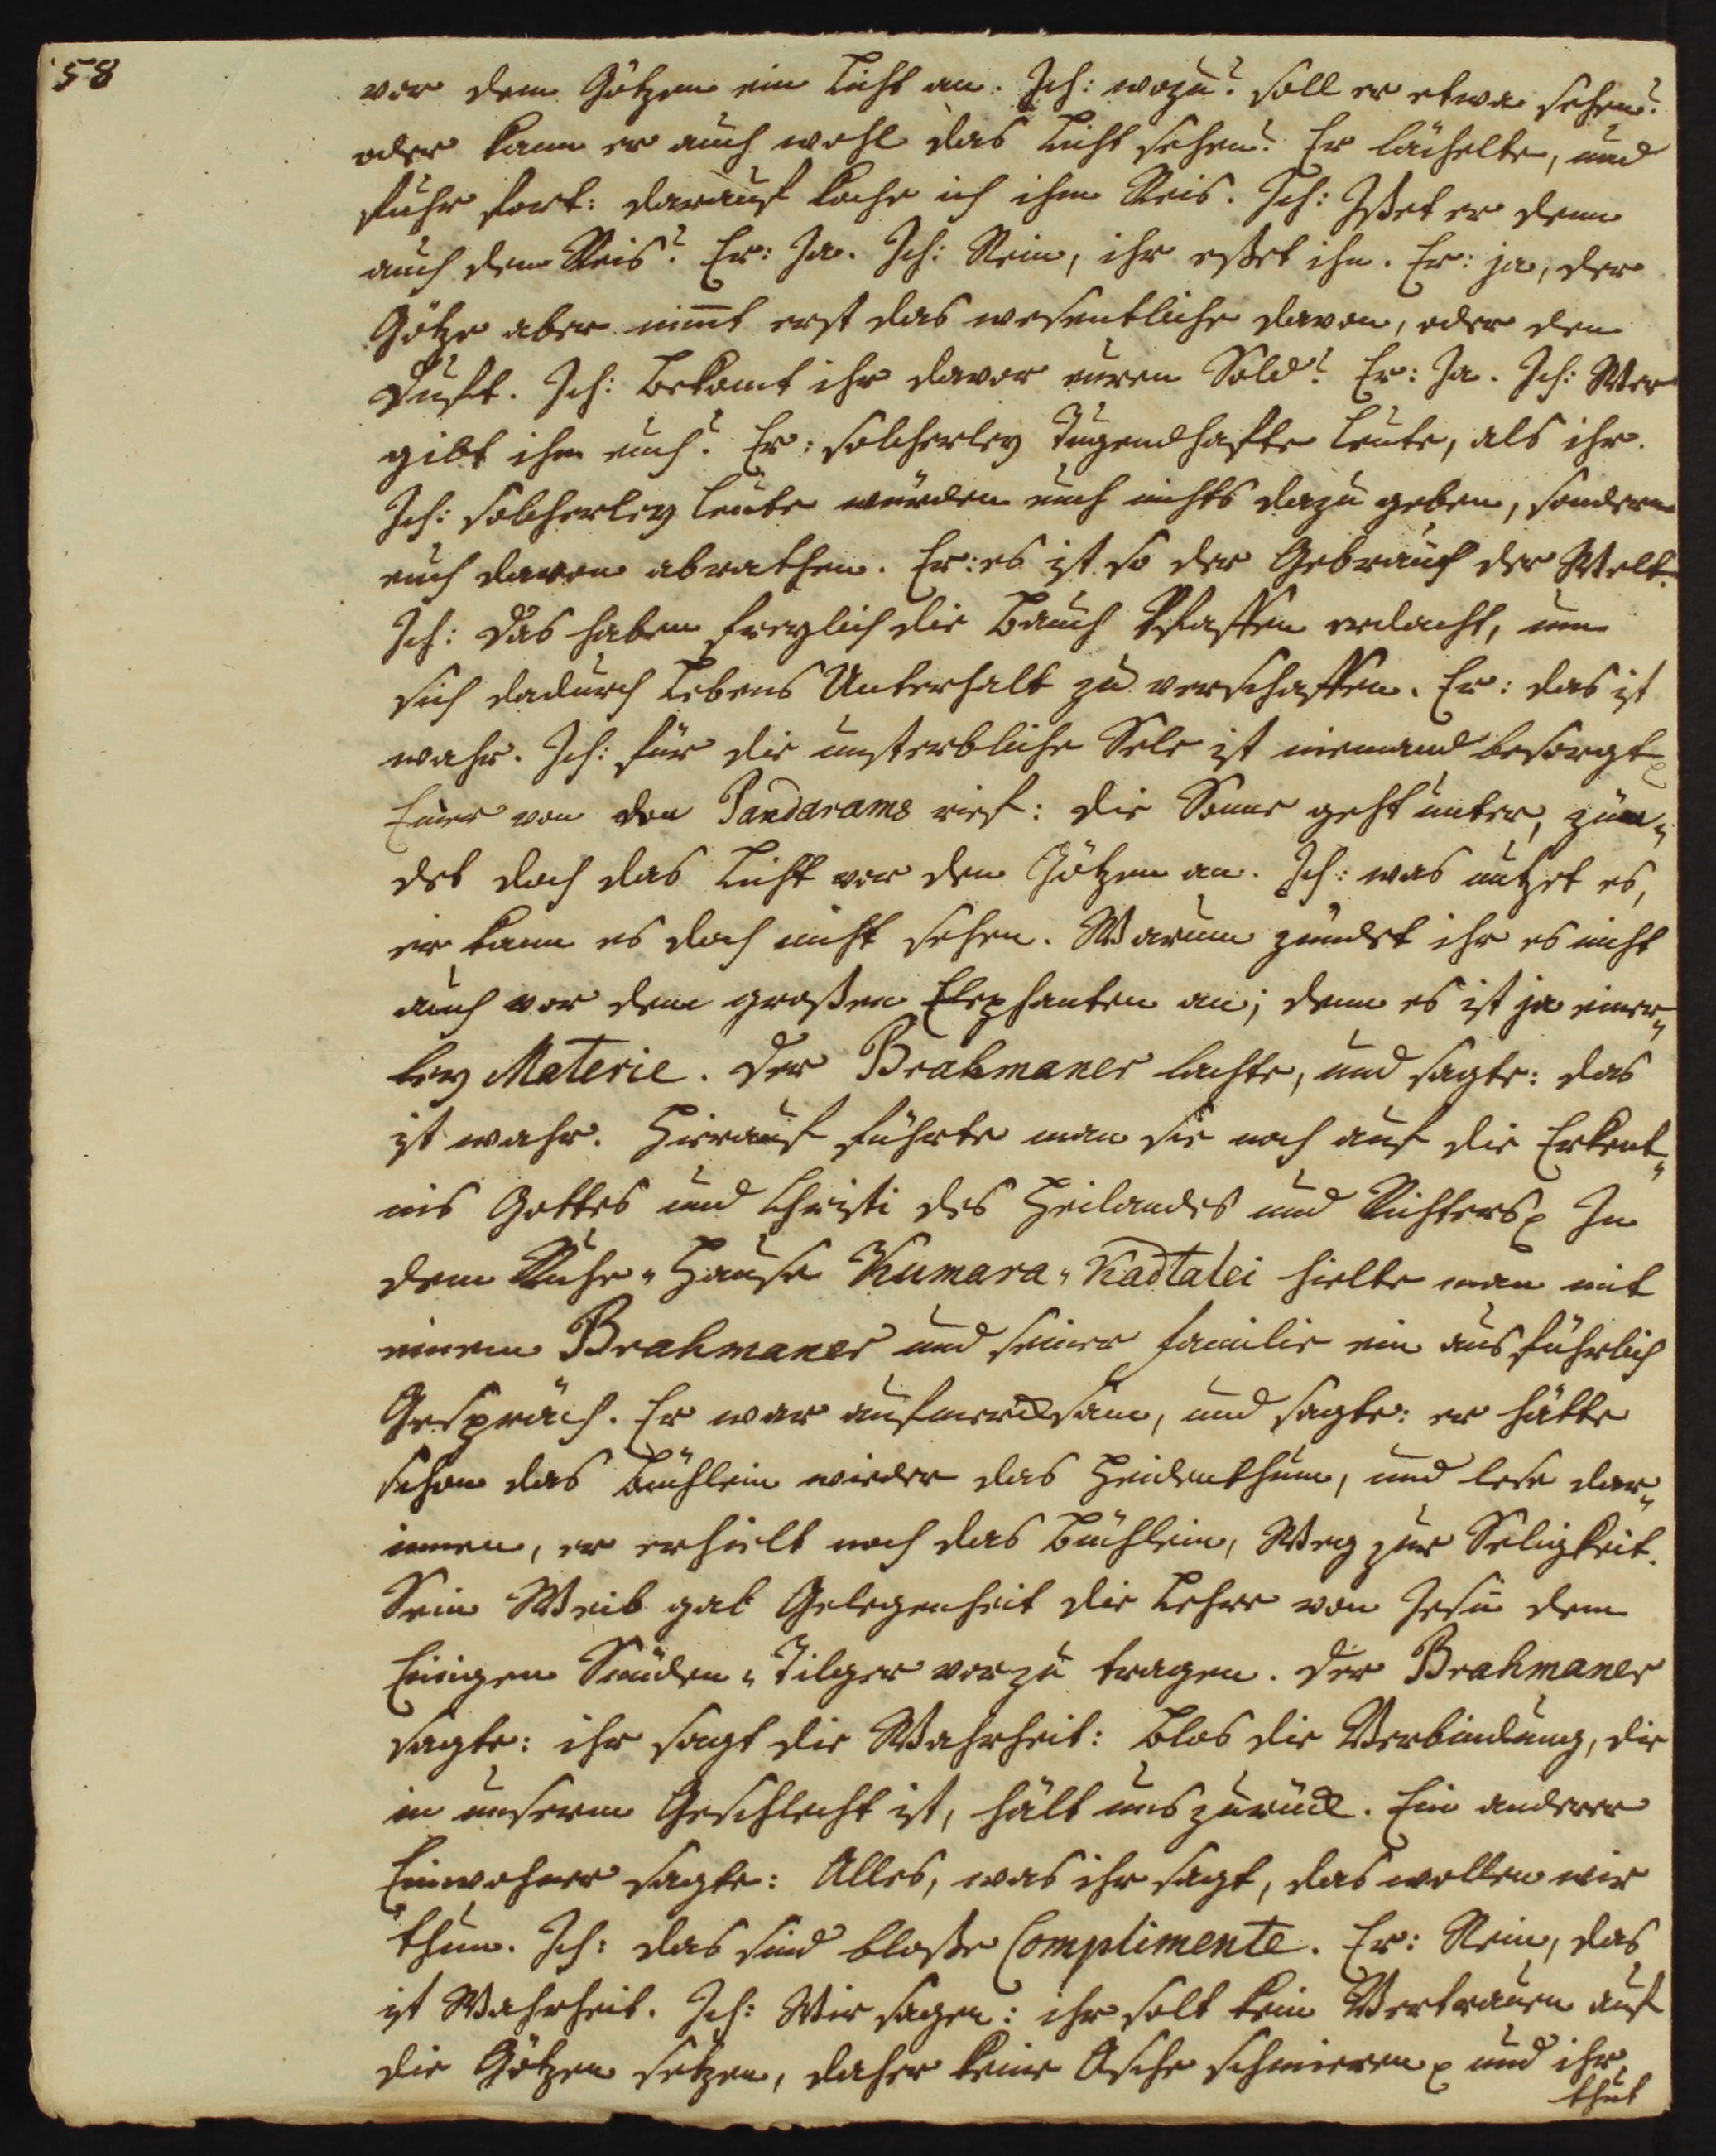 58
vor dem Götzen ein Licht an. Ich: wozu? soll er etwa sehen?
oder kann er auch wohl das Licht sehen? Er lächelte, und
fuhr fort: darauf koche ich ihm Reis. Ich: Ißet er denn
auch den Reis? Er: Ja. Ich: Nein, ihr eßet ihn. Er: ja, der
Götze aber nim̄t erst das wesentliche davon, oder den
Duft. Ich: Bekomt ihr davor euren Sold? Er: Ja. Ich: Wer
gibt ihn euch? Er: solcherley Tugendhafte Leute, als ihr.
Ich: solcherley Leute würden euch nichts dazu geben, sondern
euch davon abrathen. Er: es ist so der Gebrauch der Welt.
Ich: Das haben freylich die Bauch Pfaffen erdacht, um
sich dadurch Lebens Unterhalt zu verschaffen. Er: das ist
wahr. Ich: für die unsterbliche Sele ist niemand besorgt
Einer von den Pandarams rief: die Sonne geht unter, zün„
det doch das Licht vor den Götzen an. Ich: was nutzet es,
er kann es doch nicht sehen. Warum zündet ihr es nicht
auch vor dem großen Elephanten an; denn es ist ja einer„
ley Materie. Der Brahmaner lachte, und sagte: das
ist wahr. Hierauf führte man sie noch auf die Erkent„
nis Gottes und Christi des Heilandes und Richters In
dem Ruhe„Hause Kumara„Kadtalei hielte man mit
einem Brahmaner und seiner Familie ein ausführlich
Gespräch. Er war aufmercksam, und sagte: er hätte
schon das Büchlein wieder das Heidenthum, und lese dar„
innen, er erhielt noch das Büchlein, Weg zur Seligkeit.
Sein Weib gab Gelegenheit die Lehre von Jesu dem
Einigen Sünden„Tilger vorzu tragen. Der Brahmaner
sagte: ihr sagt die Wahrheit: blos die Verbindung, die
in unserem Geschlecht ist, hält uns zurück. Ein anderer
Einwohner sagte: Alles, was ihr sagt, das wollen wir
thun. Ich: das sind bloße Complimente. Er: Nein, das
ist Wahrheit. Ich: Wir sagen: ihr solt kein Vertrauen auf
die Götzen setzen, daher keine Asche schmieren und ihr
thut